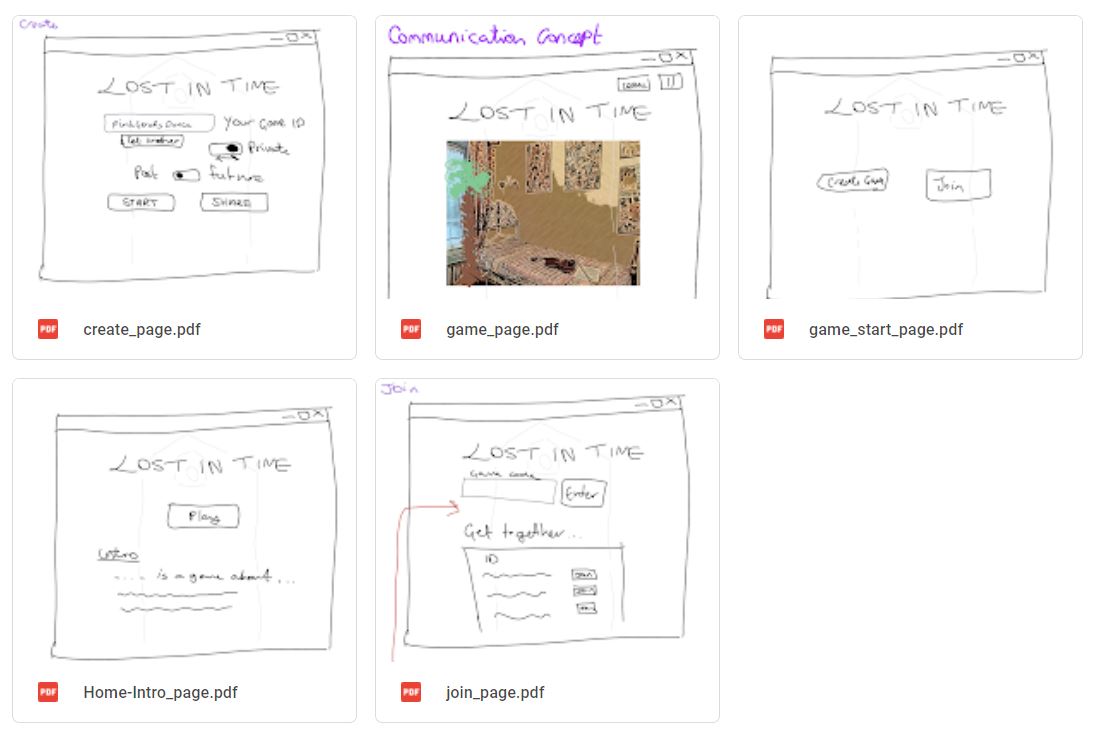 Create
LOST IN TIME
Your Game ID
Get another
Private
Past future
START SHARE
create_page.pdf
Communication Concept
LOST IN TIME
game_page.pdf
LOST IN TIME
Create Game Join
game_start_page.pdf
LOST IN TIME
Play
Intro
.... is a game about ...
Home-Intro_page.pdf
Join
LOST IN TIME
Game code
Enter
Get together...
ID
Join
Join
Join
join_page.pdf
PDF
PDF
PDF
PDF
PDF